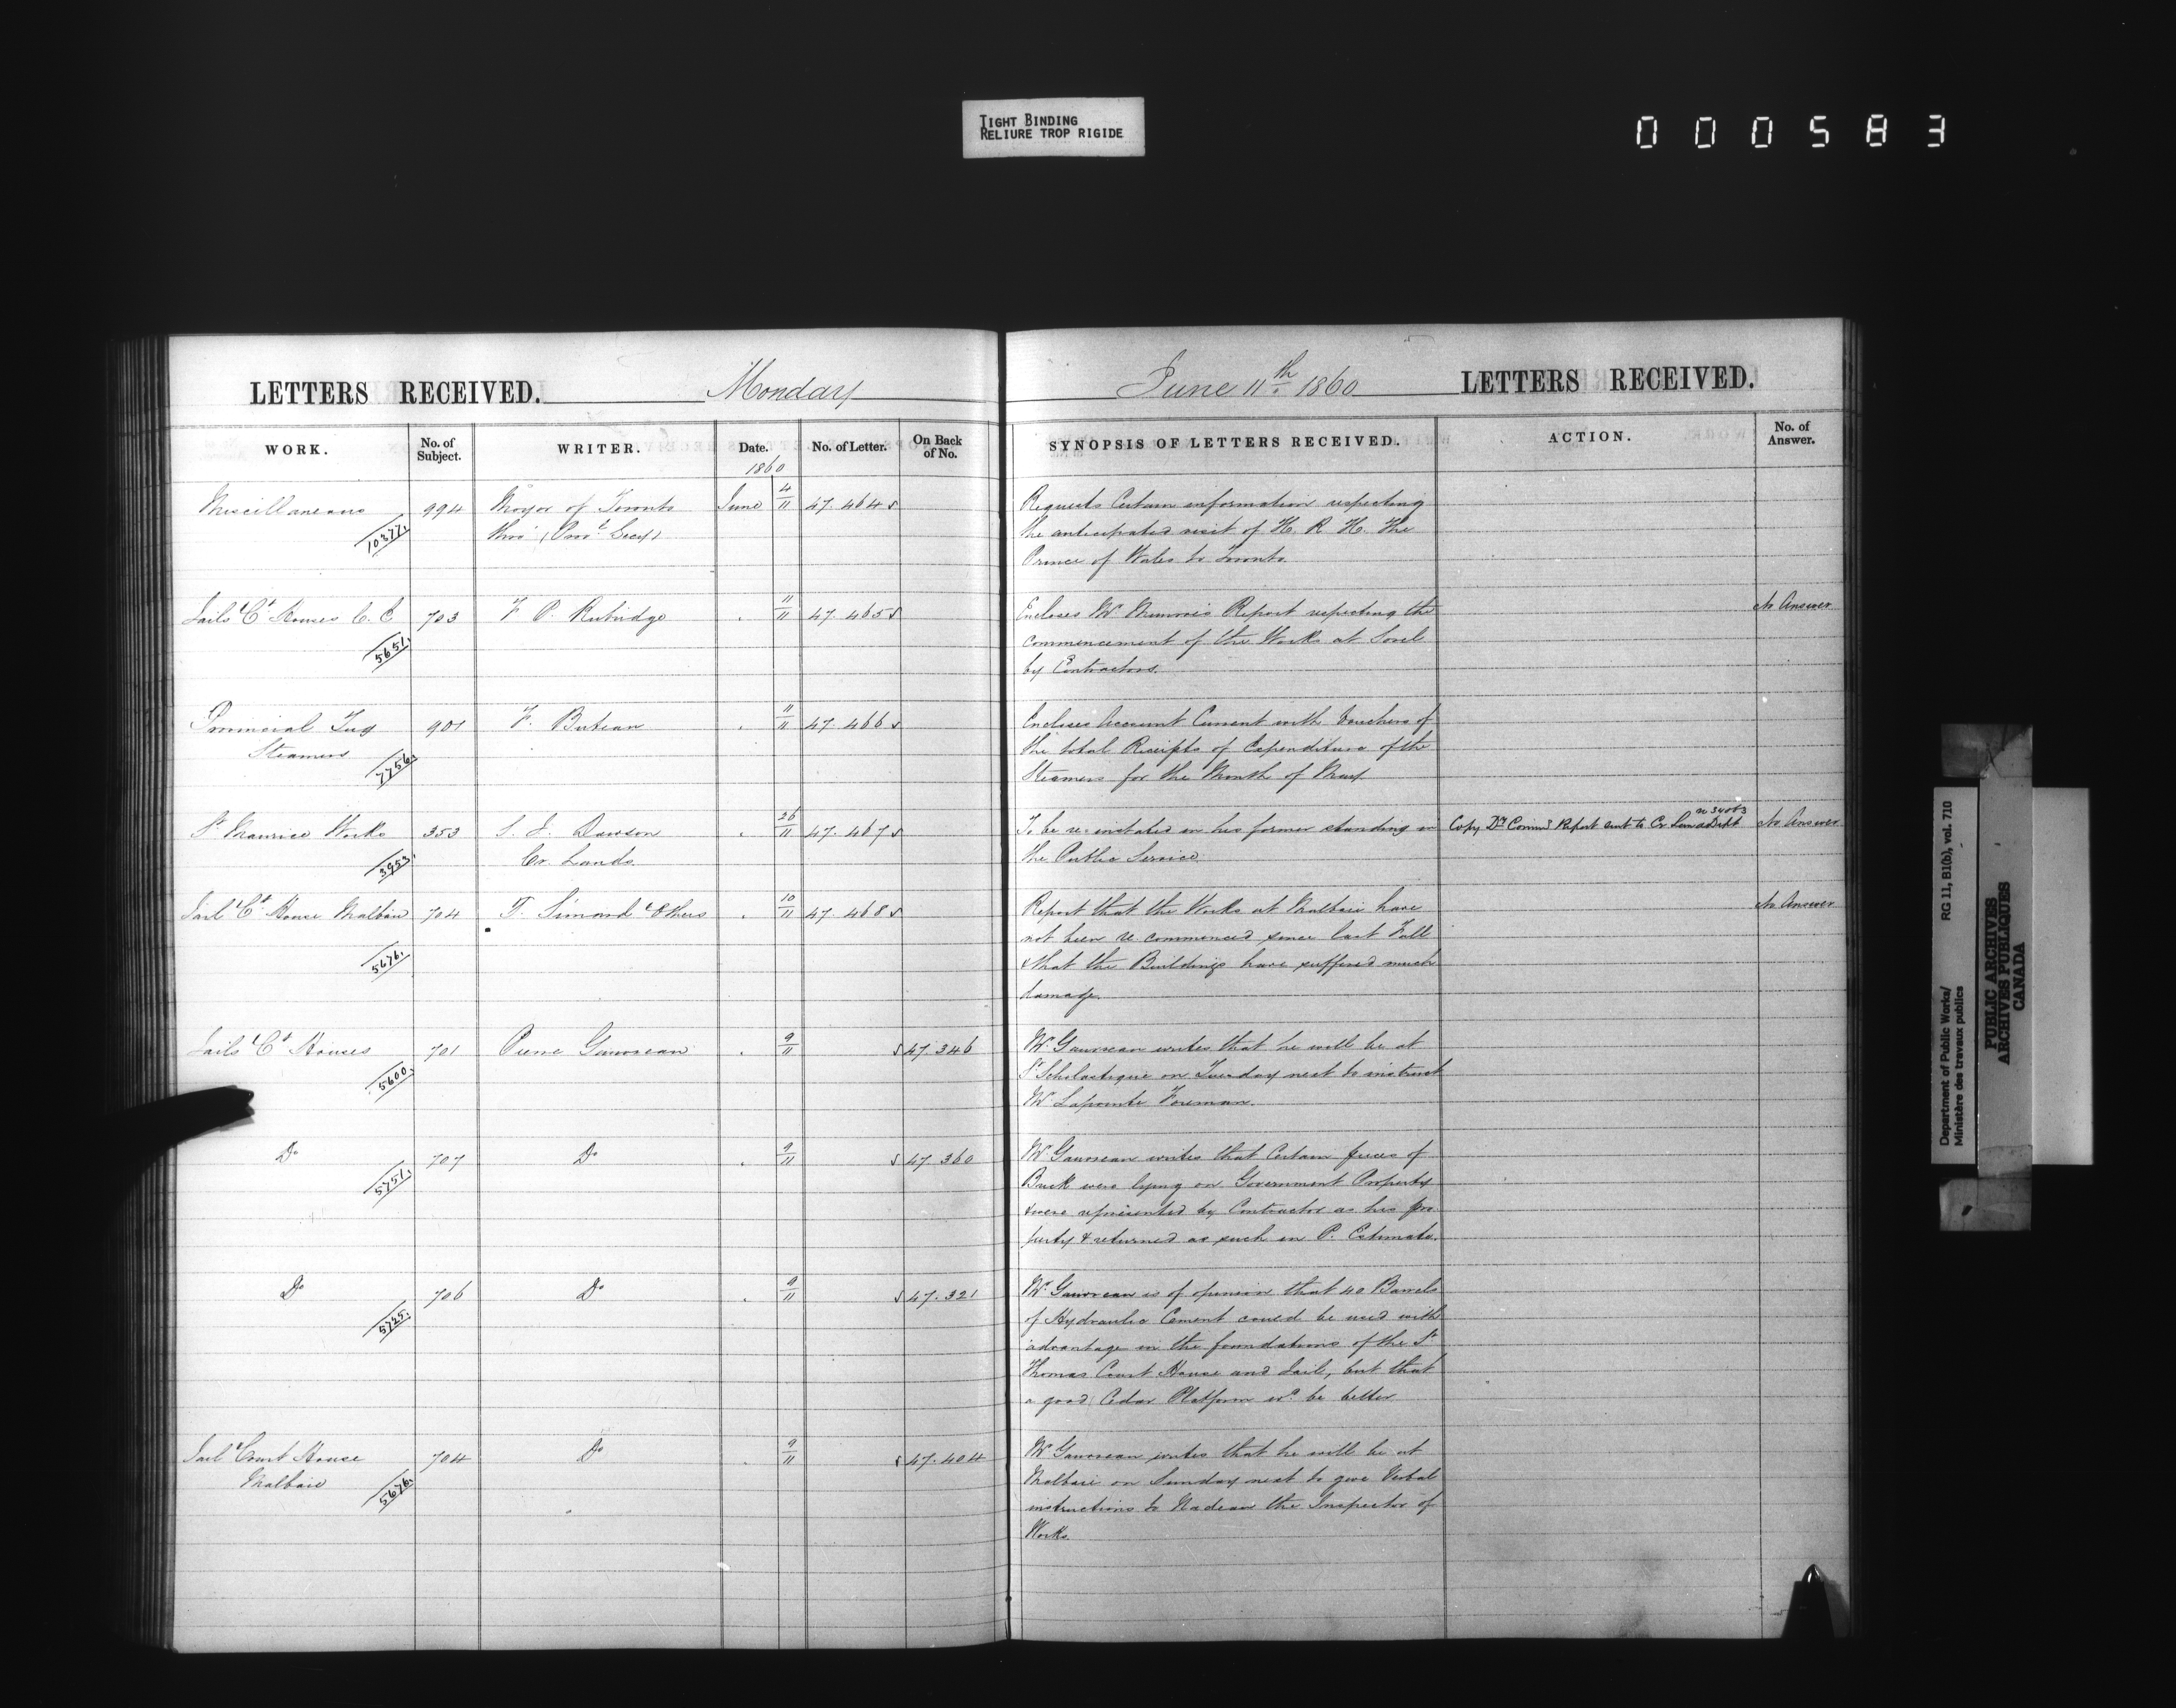 TIGHT BINDING
RELIURE TROP RIGIDE
000583
LETTERS RECEIVED. Monday
WORK. No. of Subject. WRITER. Date. No. of Letter. On Back of No.
1860
Miscellaneous 994 Mayor of Toronto June 4/11 47.464 s
1037½ thro' (Pro.l Secy)
Jails & Ct Houses C. E 703 F. P. Rubidge . 11/11 47.465 s
5651.
Provincial Tug 901 F. Buteau . 11/11 47.466 s
Steamers 7756.
St Maurice Works 353 S. J. Dawson . 26/11 47.467 s
3953. Cr. Lands.
Jail & Ct House Malbaie 704 T. Simard & Others . 10/11 47.468 s
5676.
Jails & Ct Houses 701 Pierre Gauvreau . 9/11 s 47.346
5600.
Do 707 Do . 9/11 s 47.360
5751.
Do 706 Do . 9/11 s 47.321
5725.
Jail & Court House 704 Do . 9/11 s 47.404
Malbaie 5676.
June 11th 1860 LETTERS RECEIVED.
SYNOPSIS OF LETTERS RECEIVED. ACTION. No. of Answer.
Requests Certain information respecting
the anticipated visit of H. R H. the
Prince of Wales to Toronto.
Encloses Mr Report respecting the No Answer
commencement of the Works at Sorel
by Contractors.
Encloses Account Current with Vouchers of
the total Receipts & Expenditure of the
Steamers for the Month of May.
To be re-instated in his former standing in Copy Dy Commrs Report sent to Cr Lands Dept No Answer
the Public Service.
Report that the Works at Malbaie have No Answer
not been re commenced since last Fall
& that the Buildings have suffered much
damage.
Mr Gauvreau writes that he will be at
St Scholastique on Tuesday next to instruct
Mr Lapointe Foreman.
Mr Gauvreau writes that Certain pieces of
Brick were lying on Government Property
& were represented by Contractor as his pro
perty & returned as such in P. Estimate.
Mr Gauvreau is of opinion that 40 Barrels
of Hydraulic Cement could be used with
advantage in the foundations of the St
Thomas Court House and Jail, but that
a good Cedar Platform wd be better
Mr Gauvreau writes that he will be at
Malbaie on Sunday next to give Verbal
instructions to Nadeau the Inspector of
Works.
Department of Public Works/ RG 11, B1(b), vol. 710
Ministère des travaux publics
PUBLIC ARCHIVES
ARCHIVES PUBLIQUES
CANADA